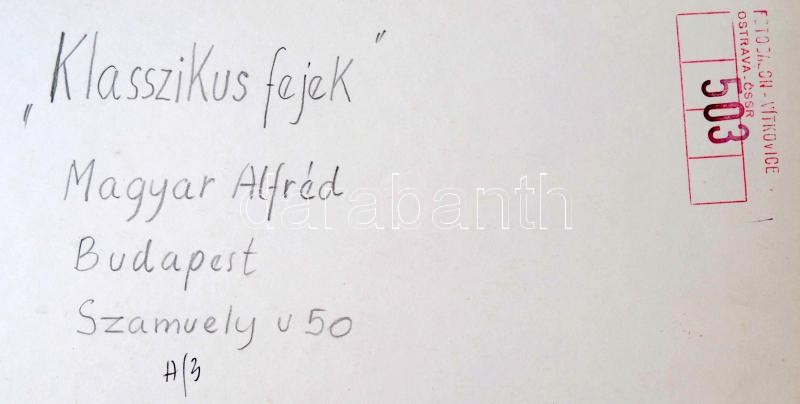 „Klasszikus fejek”
Magyar Alfréd
Budapest
Szamuely u 50
A/3
darabanth
FOTOSALON - VÍTKOVICE
OSTRAVA - ČSSR
503